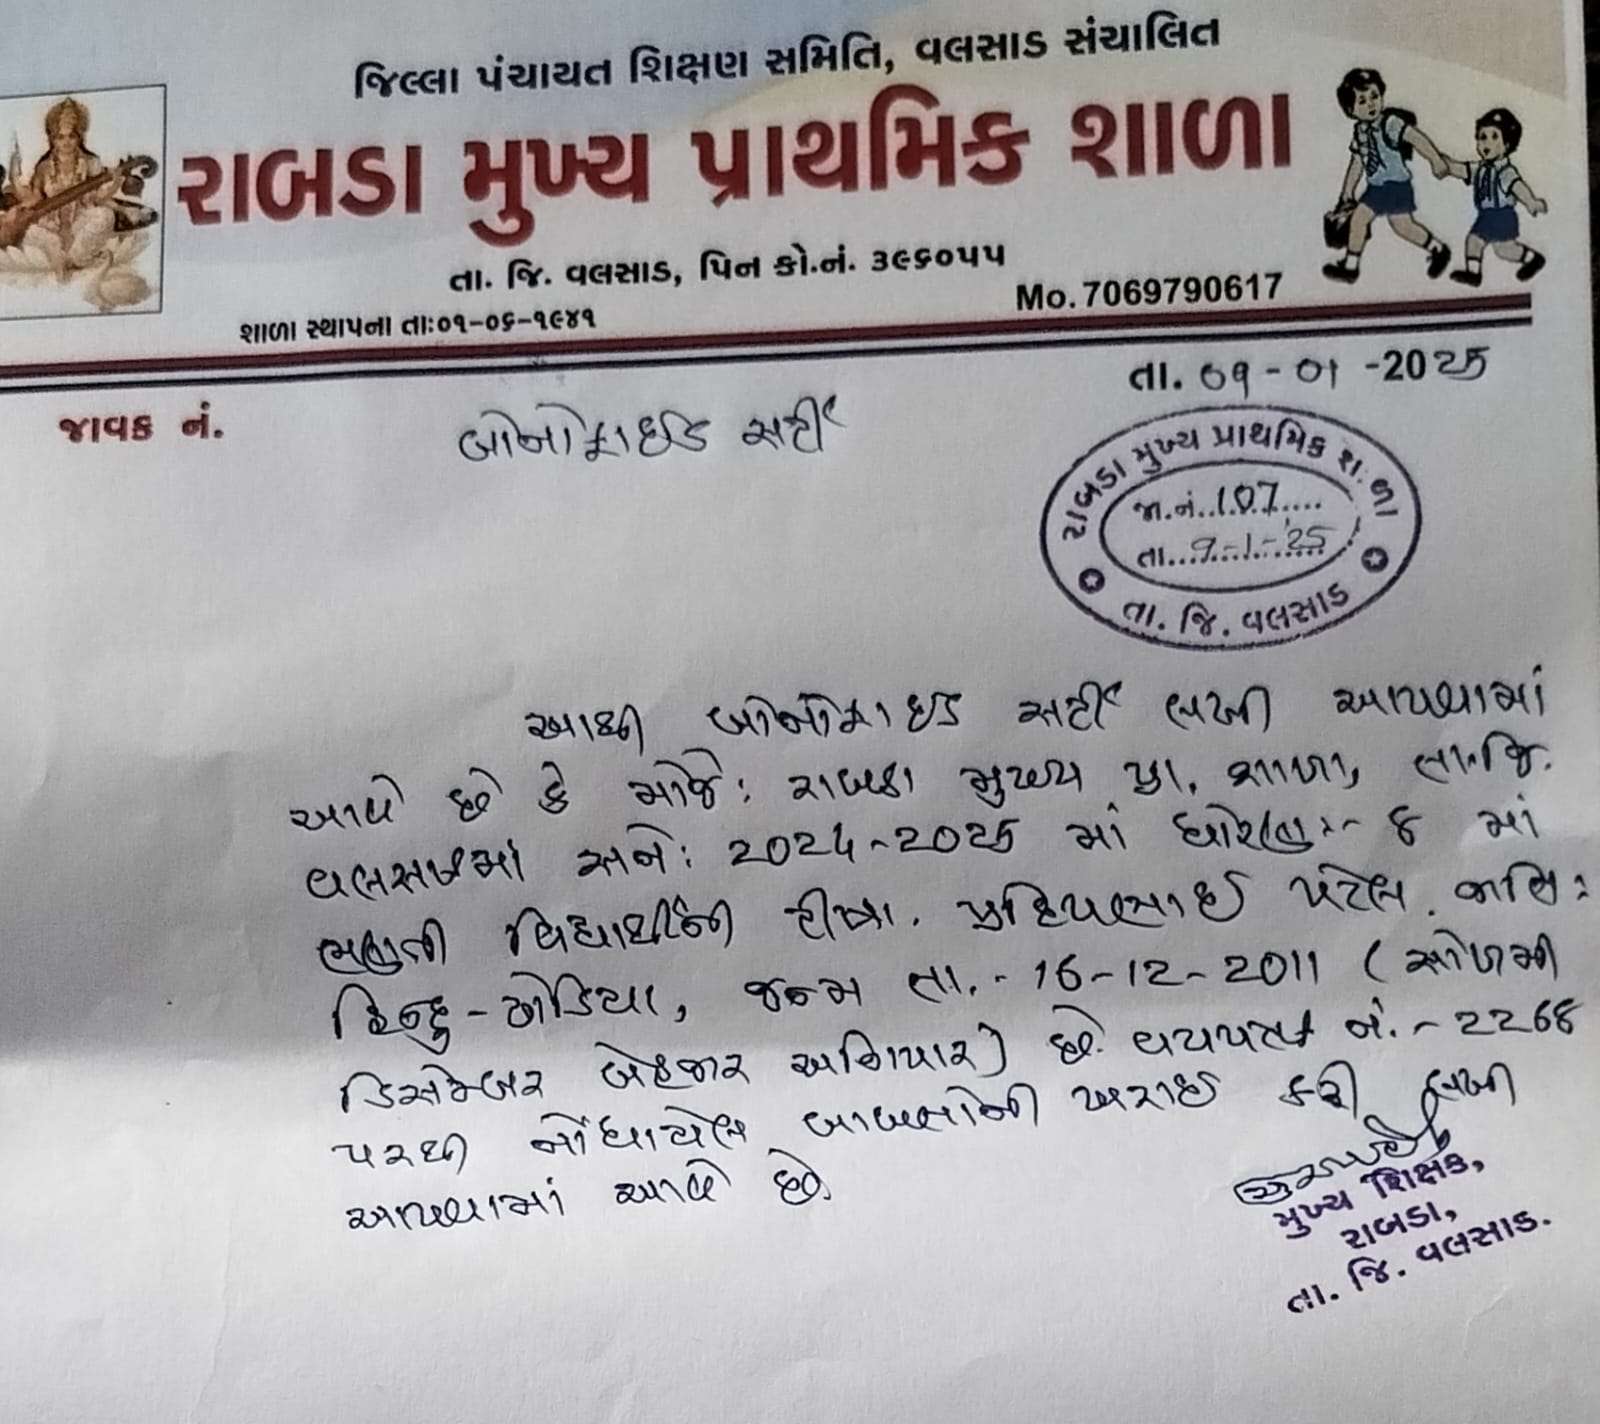 જિલ્લા પંચાયત શિક્ષણ સમિતિ, વલસાડ સંચાલિત
રાબડા મુખ્ય પ્રાથમિક શાળા
તા. જિ. વલસાડ, પિન કો.નં. ૩૯૬૦૫૫
Mo.7069790617
શાળા સ્થાપના તાઃ૦૧-૦૬-૧૯૪૧
તા. ૦૧-01-2025
જાવક નં.
બોનોફાઇડ સર્ટી
રાબડા મુખ્ય પ્રાથમિક શાળા
જા.નં..107.....
તા...9-1-'25
તા. જિ. વલસાડ
આથી બોનોફાઇડ સર્ટી લખી આપવામાં
આવે છે કે મોજે: રાબડા મુખ્ય પ્રા. શાળા, તા.જિ.
વલસાડમાં સને: 2024-2025 માં ધોરણઃ- ૪ માં
ભણતી વિદ્યાર્થીની પટેલ. જાતિ:
હિન્દુ-ધોડિયા, જન્મ તા.- 16-12-2011 (સોળમી
ડિસેમ્બર બેહજાર અગિયાર) છે. વયપત્રક નં.-2268
પરથી નોંધાયેલ બાબતોની ખરાઇ કરી લખી
આપવામાં આવે છે.
મુખ્ય શિક્ષક,
રાબડા,
તા. જિ. વલસાડ.